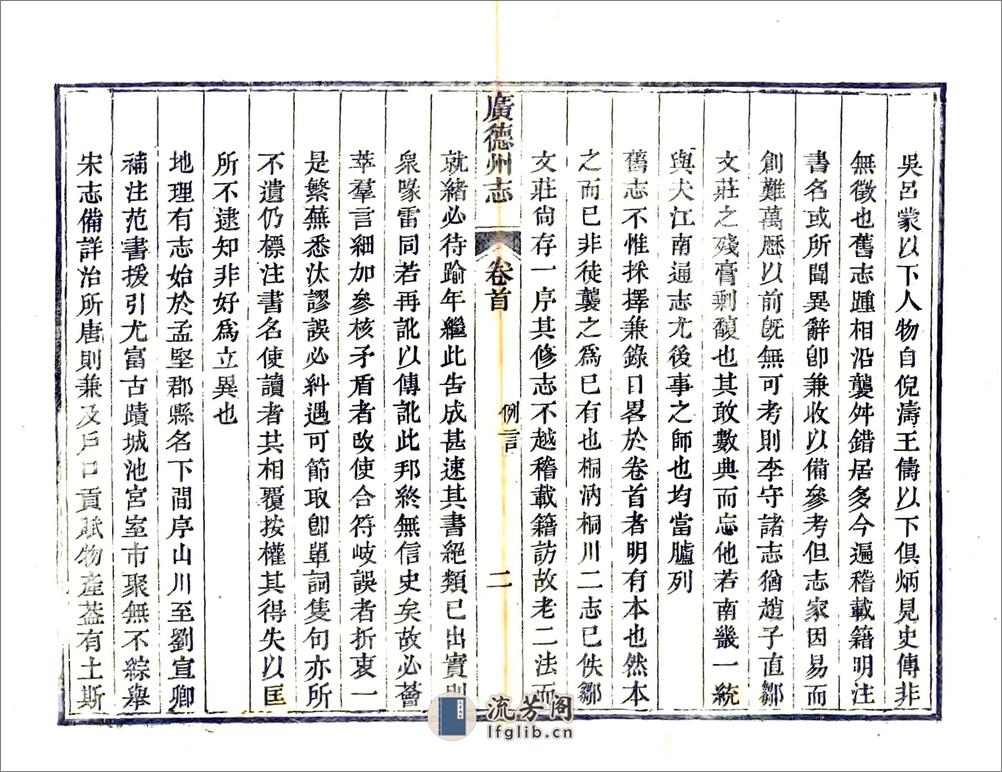 吳呂蒙以下人物自倪濤王儔以下俱炳見史傳非
無徵也舊志踵相沿襲舛錯居多今遍稽載籍明注
書名或所聞異辭卽兼收以備參考但志家因易而
創難萬歷以前旣無可考則李守諸志猶趙子直鄒
文莊之殘膏剩馥也其敢數典而忘他若南畿一統
與大江南通志尤後事之師也均當臚列
舊志不惟採擇兼錄日畧於卷首者明有本也然本
之而已非徒襲之爲已有也桐汭桐川二志已佚鄒
文莊尙存一序其修志不越稽載籍訪故老二法而
廣德州志
卷首
例言
二
就緒必待踰年繼此告成甚速其書絕類已出實則
衆喙雷同若再訛以傳訛此邦終無信史矣故必薈
萃羣言細加參核矛盾者改使合符歧誤者折衷一
是繁蕪悉汰謬誤必糾遇可節取卽單詞隻句亦所
不遺仍標注書名使讀者共相覆按權其得失以匡
所不逮知非好爲立異也
地理有志始於孟堅郡縣名下間序山川至劉宣卿
補注范書援引尤富古蹟城池宮室市聚無不綜舉
宋志備詳治所唐則兼及戶口貢賦物產葢有土斯
流芳阁
lfglib.cn